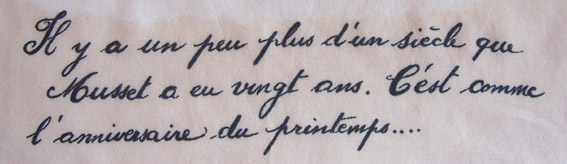 Il y a un peu plus d'un siècle que
Musset a eu vingt ans. C'est comme
l'anniversaire du printemps....